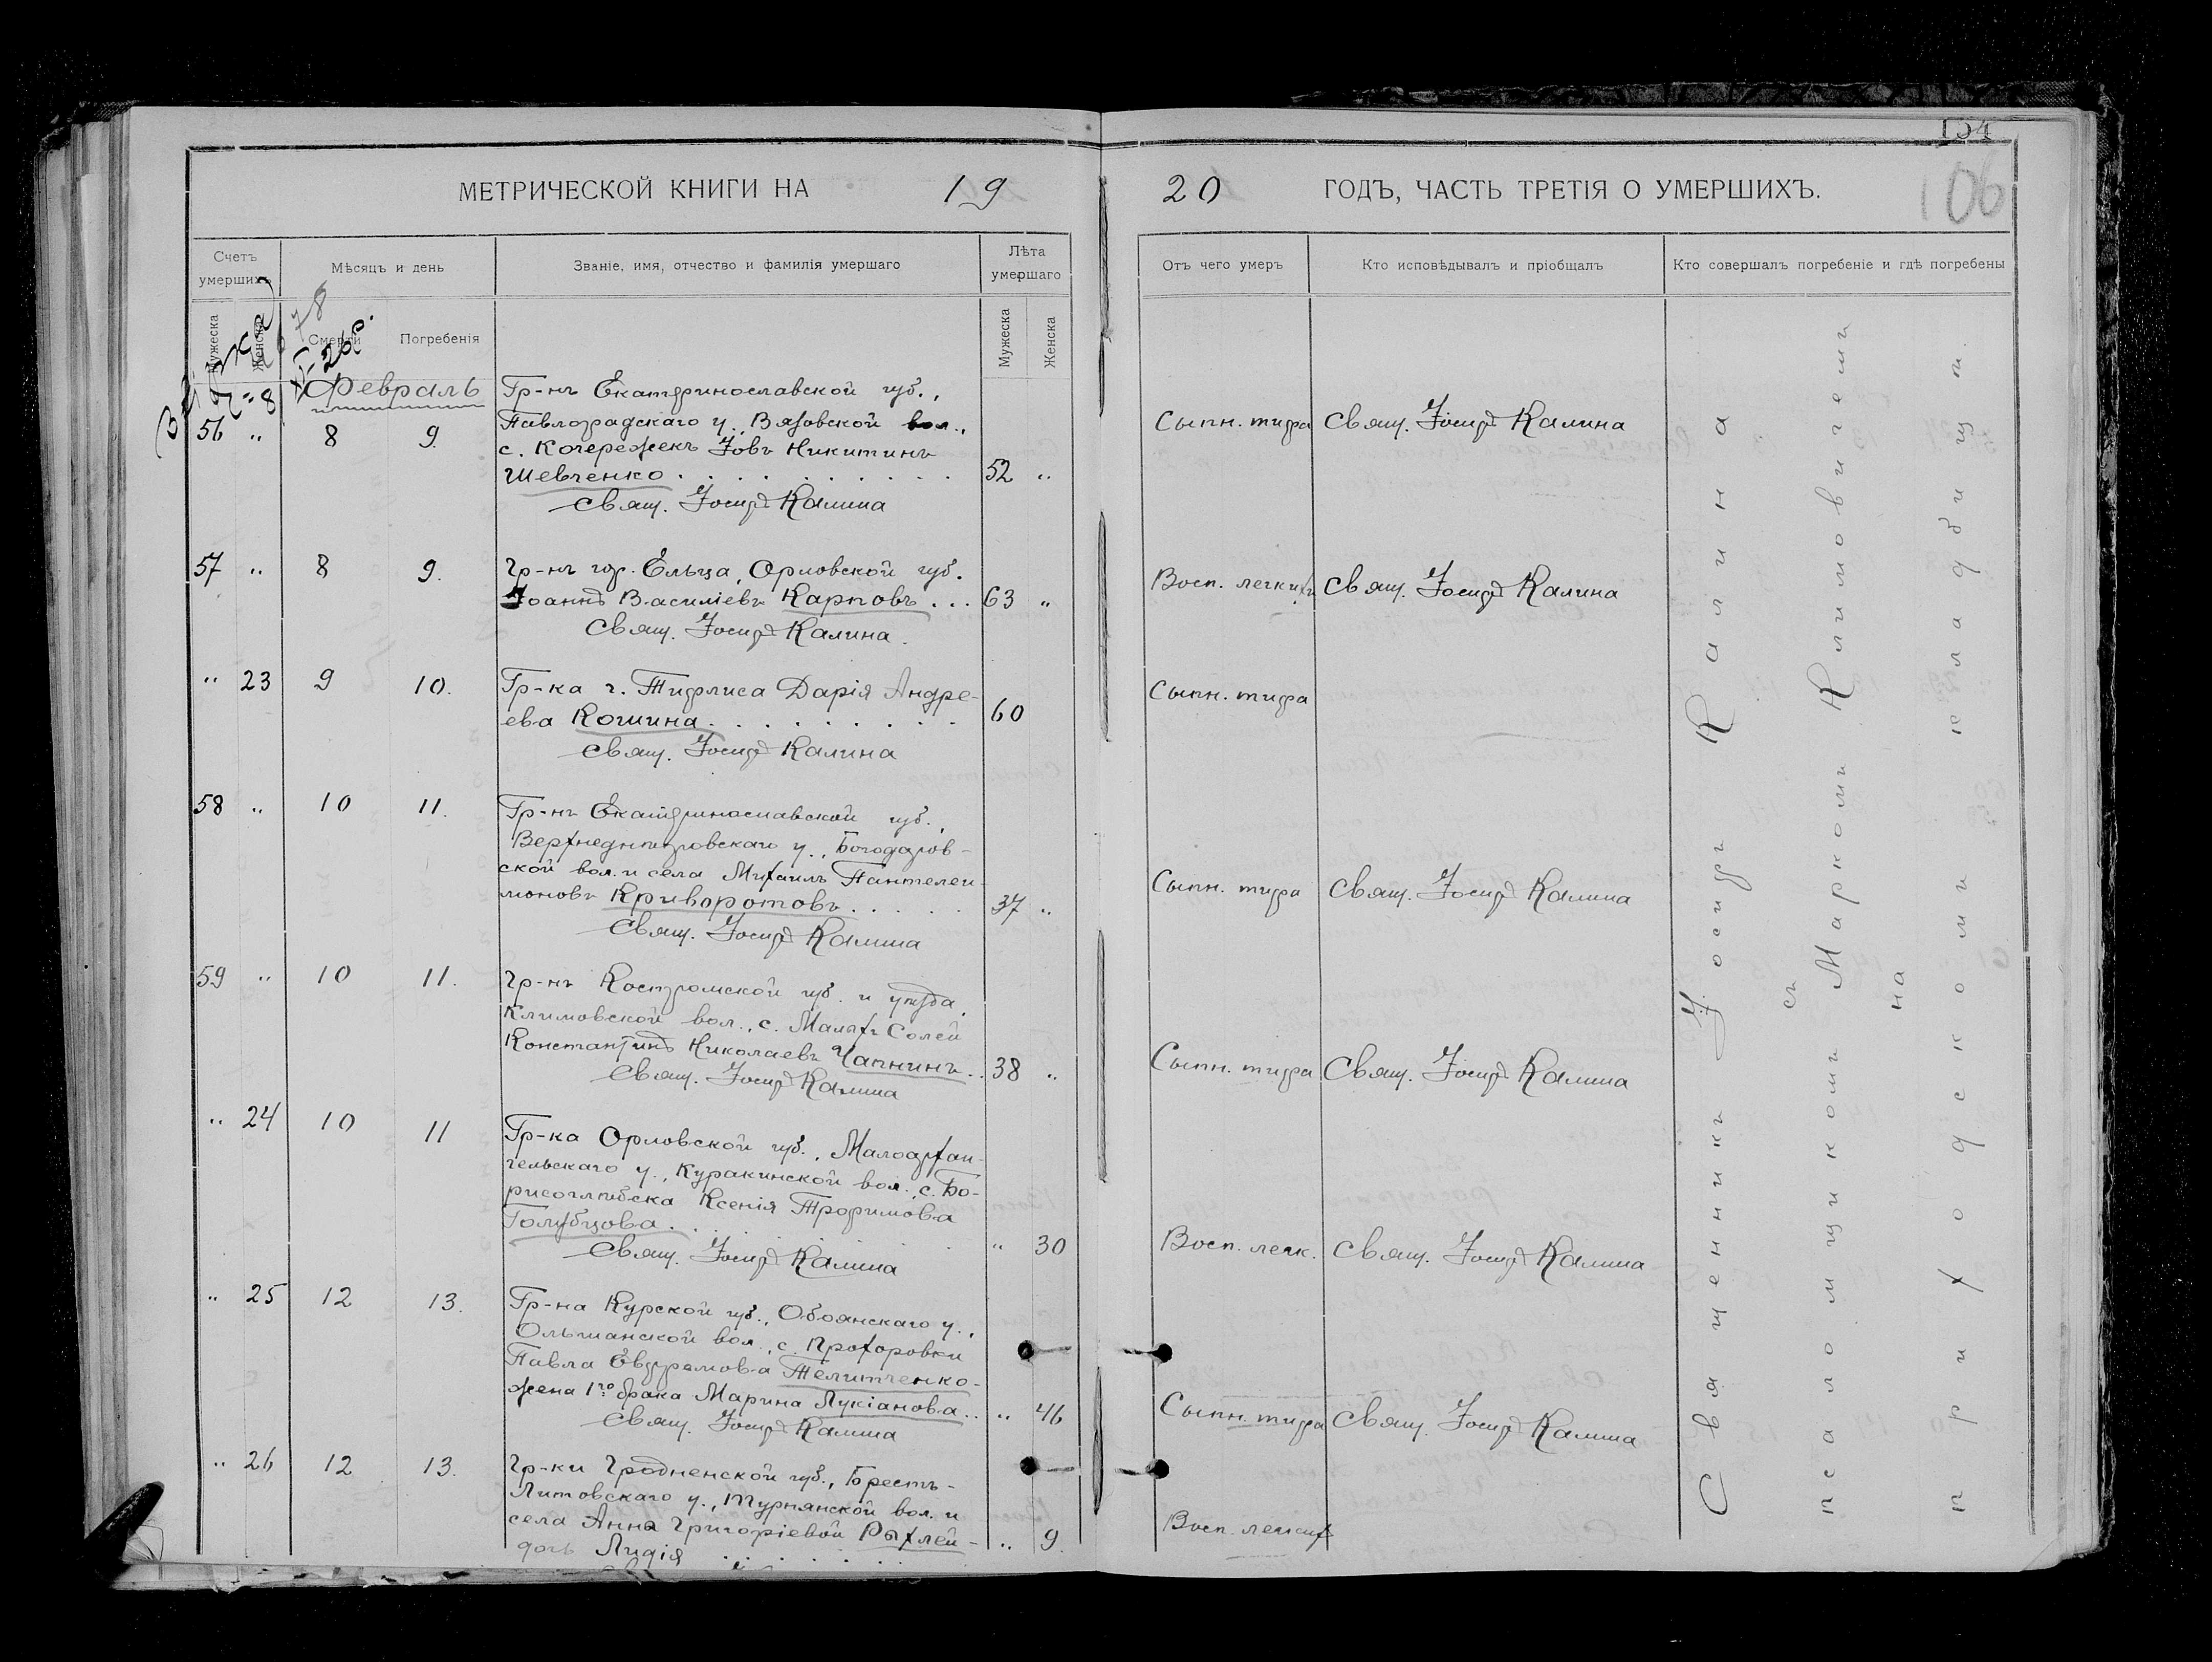 154
106
МЕТРИЧЕСКОЙ КНИГИ НА 19
20 ГОДЪ, ЧАСТЬ ТРЕТІЯ О УМЕРШИХЪ.
Счетъ умершихъ
Мѣсяцъ и день
Званіе, имя, отчество и фамилія умершаго
Лѣта умершаго
Отъ чего умеръ
Кто исповѣдывалъ и пріобщалъ
Кто совершалъ погребеніе и гдѣ погребены
Мужеска
Женска
Смерти
Погребенія
Мужеска
Женска
Февраль
Гр-нъ Екатеринославской губ.,
56 " 8 9. Павлоградскаго у., Вязовской вол., Сыпн. тифа Свящ. Іосифъ Калина
с. Кочережекъ Іовъ Никитинъ
Шевченко . . . . . . . . . 52 "
Свящ. Іосифъ Калина
57 " 8 9. Гр-нъ гор. Ельца, Орловской губ. Восп. легкихъ Свящ. Іосифъ Калина
Іоаннъ Василіевъ Карповъ . . . 63 "
Свящ. Іосифъ Калина.
" 23 9 10. Гр-ка г. Тифлиса Дарія Андре- Сыпн. тифа
ева Кошина . . . . . . . . . 60
Свящ. Іосифъ Калина
58 " 10 11. Гр-нъ Екатеринославской губ.,
Верхнеднѣпровскаго у., Богодаров-
ской вол. и села Михаилъ Пантелеи- Сыпн. тифа Свящ. Іосифъ Калина
моновъ Криворотовъ . . . . . 37 "
Свящ. Іосифъ Калина
59 " 10 11. Гр-нъ Костромской губ. и уѣзда,
Климовской вол., с. Малыхъ Солей
Константинъ Николаевъ Чапнинъ . . 38 " Сыпн. тифа Свящ. Іосифъ Калина
Свящ. Іосифъ Калина
" 24 10 11 Гр-ка Орловской губ., Малоархан-
гельскаго у., Куракинской вол., с. Бо-
рисоглѣбска Ксенія Трофимова
Голубцова . . . . . . . . . " 30 Восп. легк. Свящ. Іосифъ Калина
Свящ. Іосифъ Калина
" 25 12 13. Гр-на Курской губ., Обоянскаго у.,
Ольшанской вол., с. Прохоровки
Павла Евфремова Телитченко-
жена 1го брака Марина Лукіанова . . " 46 Сыпн. тифа Свящ. Іосифъ Калина
Свящ. Іосифъ Калина
" 26 12 13. Гр-ки Гродненской губ., Брестъ-
Литовскаго у., Турнянской вол. и
села Анны Григоріевой Рыхлей- " 9. Восп. легких
дочь Лидія . . . . . .
Священникъ Іосифъ Калина
съ
псаломщикомъ Маркомъ Климовичемъ
на
приходскомъ кладбищѣ.